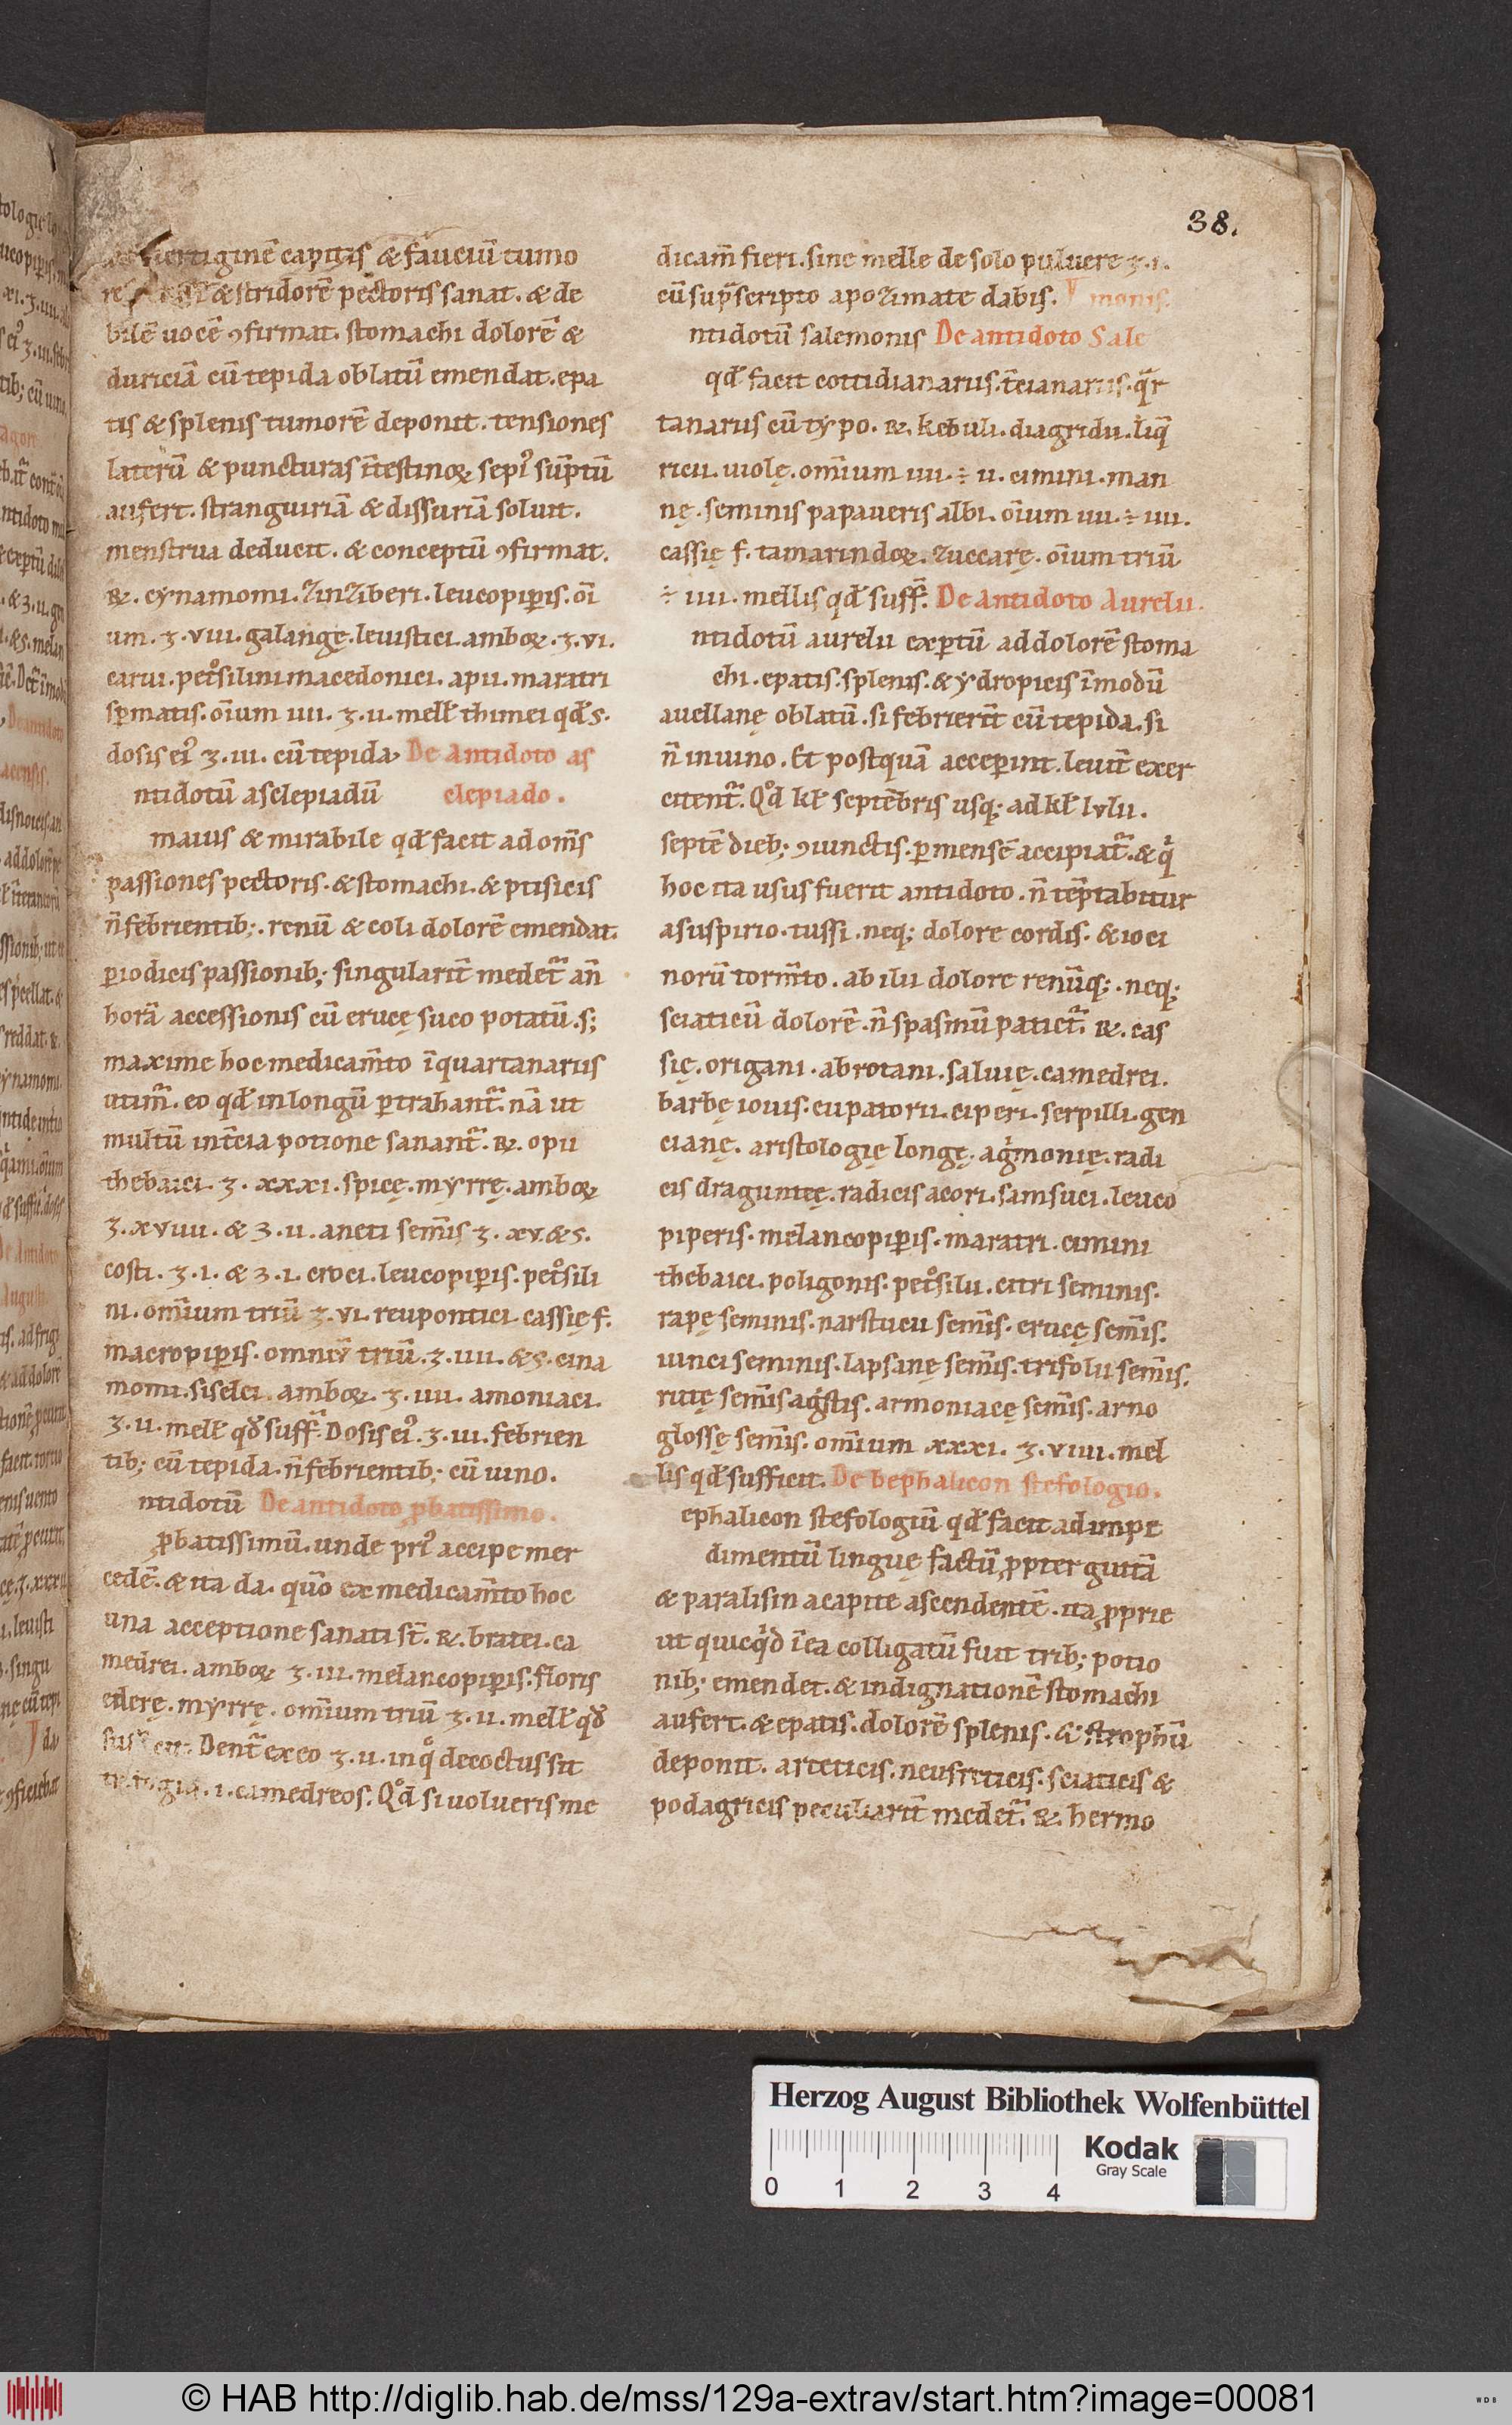 38.
uertiginē capitis & fauciū tumo
& stridorē pectoris sanat. & de
bilē uocē ꝯfirmat. stomachi dolorē &
duriciā cū tepida oblatū emendat. epa
tis & splenis tumorē deponit. tensiones
laterū & puncturas ītestinoꝝ sepi᷎ sūptū
aufert. stranguiriā & dissuriā soluit.
menstrua deducit. & conceptū ꝯfirmat.
℞. cynamomi. zinziberi. leucopiꝑis. oī
um. ʒ. VIII. galangę. leuistici. amboꝝ. ʒ. VI.
carui. pet᷎silini macedonici. apii. maratri
sꝑmatis. oīum IIII. ʒ. II. meɫɫ thimei qđ s.
dosis ei᷎ ʒ. III. cū tepida. De Antidoto as
ntidotū asclepiadū clepiado.
maius & mirabile qđ facit ad om̄s
passiones pectoris. & stomachi. & ptisicis
n̄ febrientib;. renū & coli dolorē emendat.
ꝑiodicis passionib; singularit̄ medet᷑ an̄
horā accessionis cū erucę suco potatū. s;
maxime hoc medicam̄to ī quartanariis
utim᷑. eo qđ in longū ꝑtrahant᷑. nā ut
multū in t̄cia potione sanant᷑. ℞. opii
thebaici. ʒ. XXXI. spicę. myrrę. amboꝝ
ʒ. XVIIII. & ʒ. II. aneti sem̄is ʒ. XV. & s.
costi. ʒ. I. & ʒ. I. croci. leucopiꝑis. pet᷎sili
ni. om̄ium triū ʒ. VI. reupontici. cassię f.
macropiꝑis. omniū triū. ʒ. IIII. & s. cina
momi. siselei. amboꝝ. ʒ. IIII. amoniaci.
ʒ. II. meɫɫ qđ suff̄. Dosis ei᷎. ʒ. III. febrien
tib; cū tepida. n̄ febrientib; cū uino.
ntidotū De antidoto ꝓbatissimo.
ꝓbatissimū. unde pri᷎ accipe mer
cedē. & ita da. quō ex medicam̄to hoc
una acceptione sanati st̄. ℞. bratei. ca
medrei. amboꝝ ʒ. III. melancopiꝑis. floris
ederę. myrrę. om̄ium triū ʒ. II. meɫɫ qđ
Dent᷑ ex eo ʒ. II. in qͦ decoctus sit
.i. camedreos. Qͦd si uolueris me
dicam̄ fieri. sine melle de solo puluere ʒ. I.
cū sup̄scripto apozimate dabis. monis.
ntidotū salemonis De antidoto Sale
qđ facit cottidianariis. t̄cianariis. qr̄
tanariis cū typo. ℞. kebuli. diagridii. liq̄
ricii. uiolę. om̄ium IIII. ÷ II. cimini. man
nę. seminis papaueris albi. oīum IIII. ÷ IIII.
cassię f. tamarindoꝝ. zuccarę. oīum triū
÷ IIII. mellis qđ suff̄. De Antidoto Aurelii.
ntidotū aurelii exꝑtū ad dolorē stoma
chi. epatis. splenis. & ydropicis ī modū
auellanę oblatū. si febrierīt cū tepida. si
n̄ in uino. Et postquā acceꝑint. leuit̄ exer
citent᷑. Qͦd kɫ septēbris usq; ad kɫ iulii.
septē dieb; ꝯiunctis. ꝑ mensē accipiat᷑. & qͥ
hoc ita usus fuerit antidoto. n̄ tēptabitur
a suspirio. tussi. neq; dolore cordis. & ioci
norū torm̄to. ab ilii dolore renūq;. neq;
sciaticū dolorē. n̄ spasmū patiet᷑. ℞. cas
się. origani. abrotani. saluię. camedrei.
barbę iouis. eupatorii. ciperi. serpilli. gen
cianę. aristologię longę. agͥmonię. radi
cis draguntęę. radicis acori. samsuci. leuco
piperis. melancopiꝑis. maratri. cimini
thebaici. poligonis. pet᷎silii. citri seminis.
rapę seminis. narstucii sem̄is. erucę sem̄is.
iunci seminis. lapsanę sem̄is. trifolii sem̄is.
rutę sem̄is agͤstis. armoniacę sem̄is. arno
glossę sem̄is. om̄ium XXXI. ʒ. VIIII. mel
lis qđ sufficit. De hephalicon stefologio.
ephalicon stefologiū qđ facit ad impe
dimentū linguę factū ꝓpter guttā
& paralisin a capite ascendentē. ita ꝓprie
ut quicqͥd ī ea colligatū fuit trib; potio
nib; emendet. & indignationē stomachi
aufert. & epatis. dolorē splenis. & strophū
deponit. arteticis. neufreticis. sciaticis &
podagricis peculiarit̄ medet᷑. ℞. hermo
Herzog August Bibliothek Wolfenbüttel
0 1 2 3 4
Kodak
Gray Scale
© HAB http://diglib.hab.de/mss/129a-extrav/start.htm?image=00081
WDB